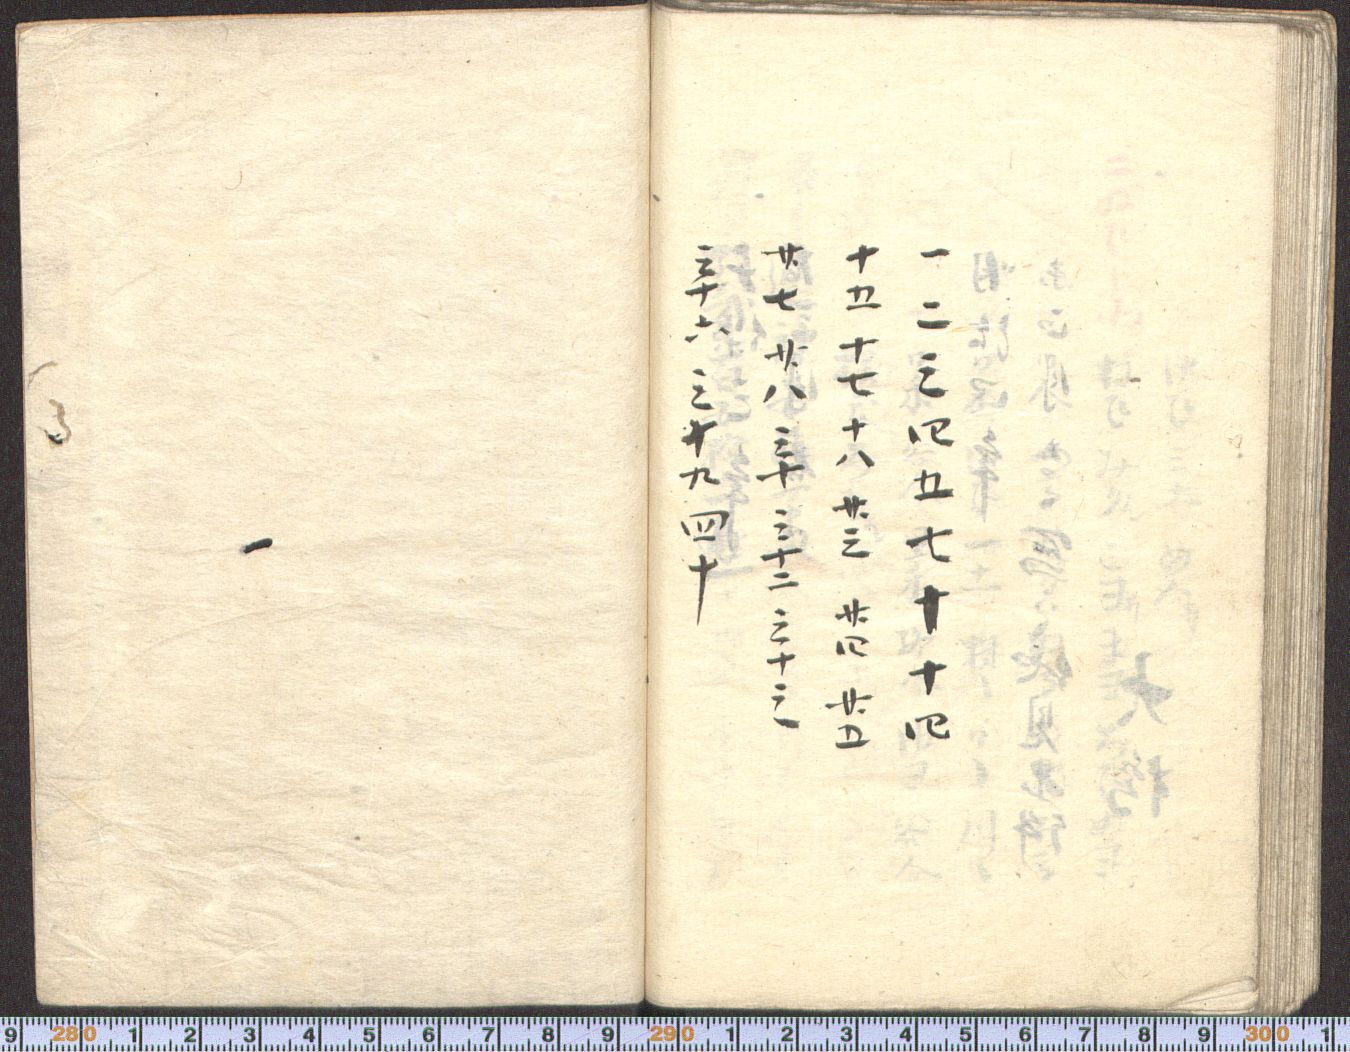 一 二 三 四 五 七 十 十四
十五 十七 十八 廿三 廿四 廿五
廿七 廿八 三十 三十二 三十三
三十六 三十九 四十
9 280 1 2 3 4 5 6 7 8 9 290 1 2 3 4 5 6 7 8 9 300 1